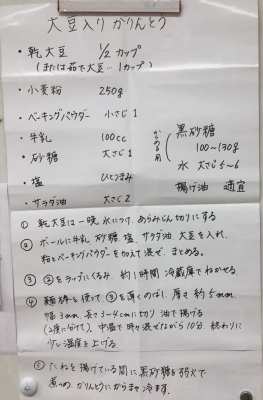 大豆入りかりんとう
・乾大豆 1/2カップ
(または茹で大豆…1カップ)
・小麦粉 250g
・ベーキングパウダー 小さじ1
・牛乳 100cc
・砂糖 大さじ1
・塩 ひとつまみ
・サラダ油 大さじ2
からめる用
黒砂糖
100〜130g
水 大さじ5〜6
揚げ油 適宜
① 乾大豆は一晩水につけ、あらみじん切りにする
② ボールに牛乳 砂糖 塩、サラダ油 大豆を入れ、
粉とベーキングパウダーを加えて混ぜ、まとめる。
③ ②をラップにくるみ 約1時間 冷蔵庫でねかせる。
④ 麺棒を使って、③を薄くのばし、厚さ約5mm
幅3mm、長さ3〜4cmに切り 油で揚げる
(2度に分けて)、中温で時々混ぜながら10分、終わりに
少し温度を上げる
⑤ たねを揚げている間に黒砂糖を弱火で
煮つめ、かりんとうにからませ冷ます。